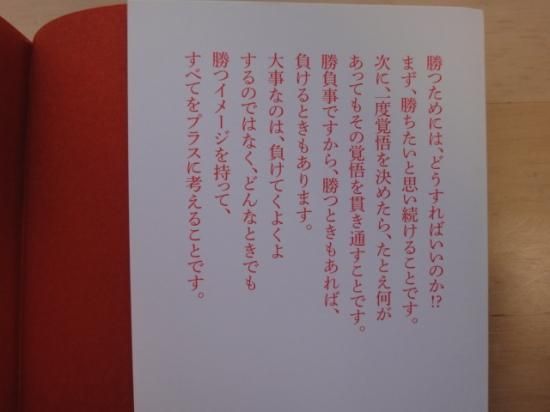 勝つためには、どうすればいいのか!?
まず、勝ちたいと思い続けることです。
次に、一度覚悟を決めたら、たとえ何が
あってもその覚悟を貫き通すことです。
勝負事ですから、勝つときもあれば、
負けるときもあります。
大事なのは、負けてくよくよ
するのではなく、どんなときでも
勝つイメージを持って、
すべてをプラスに考えることです。